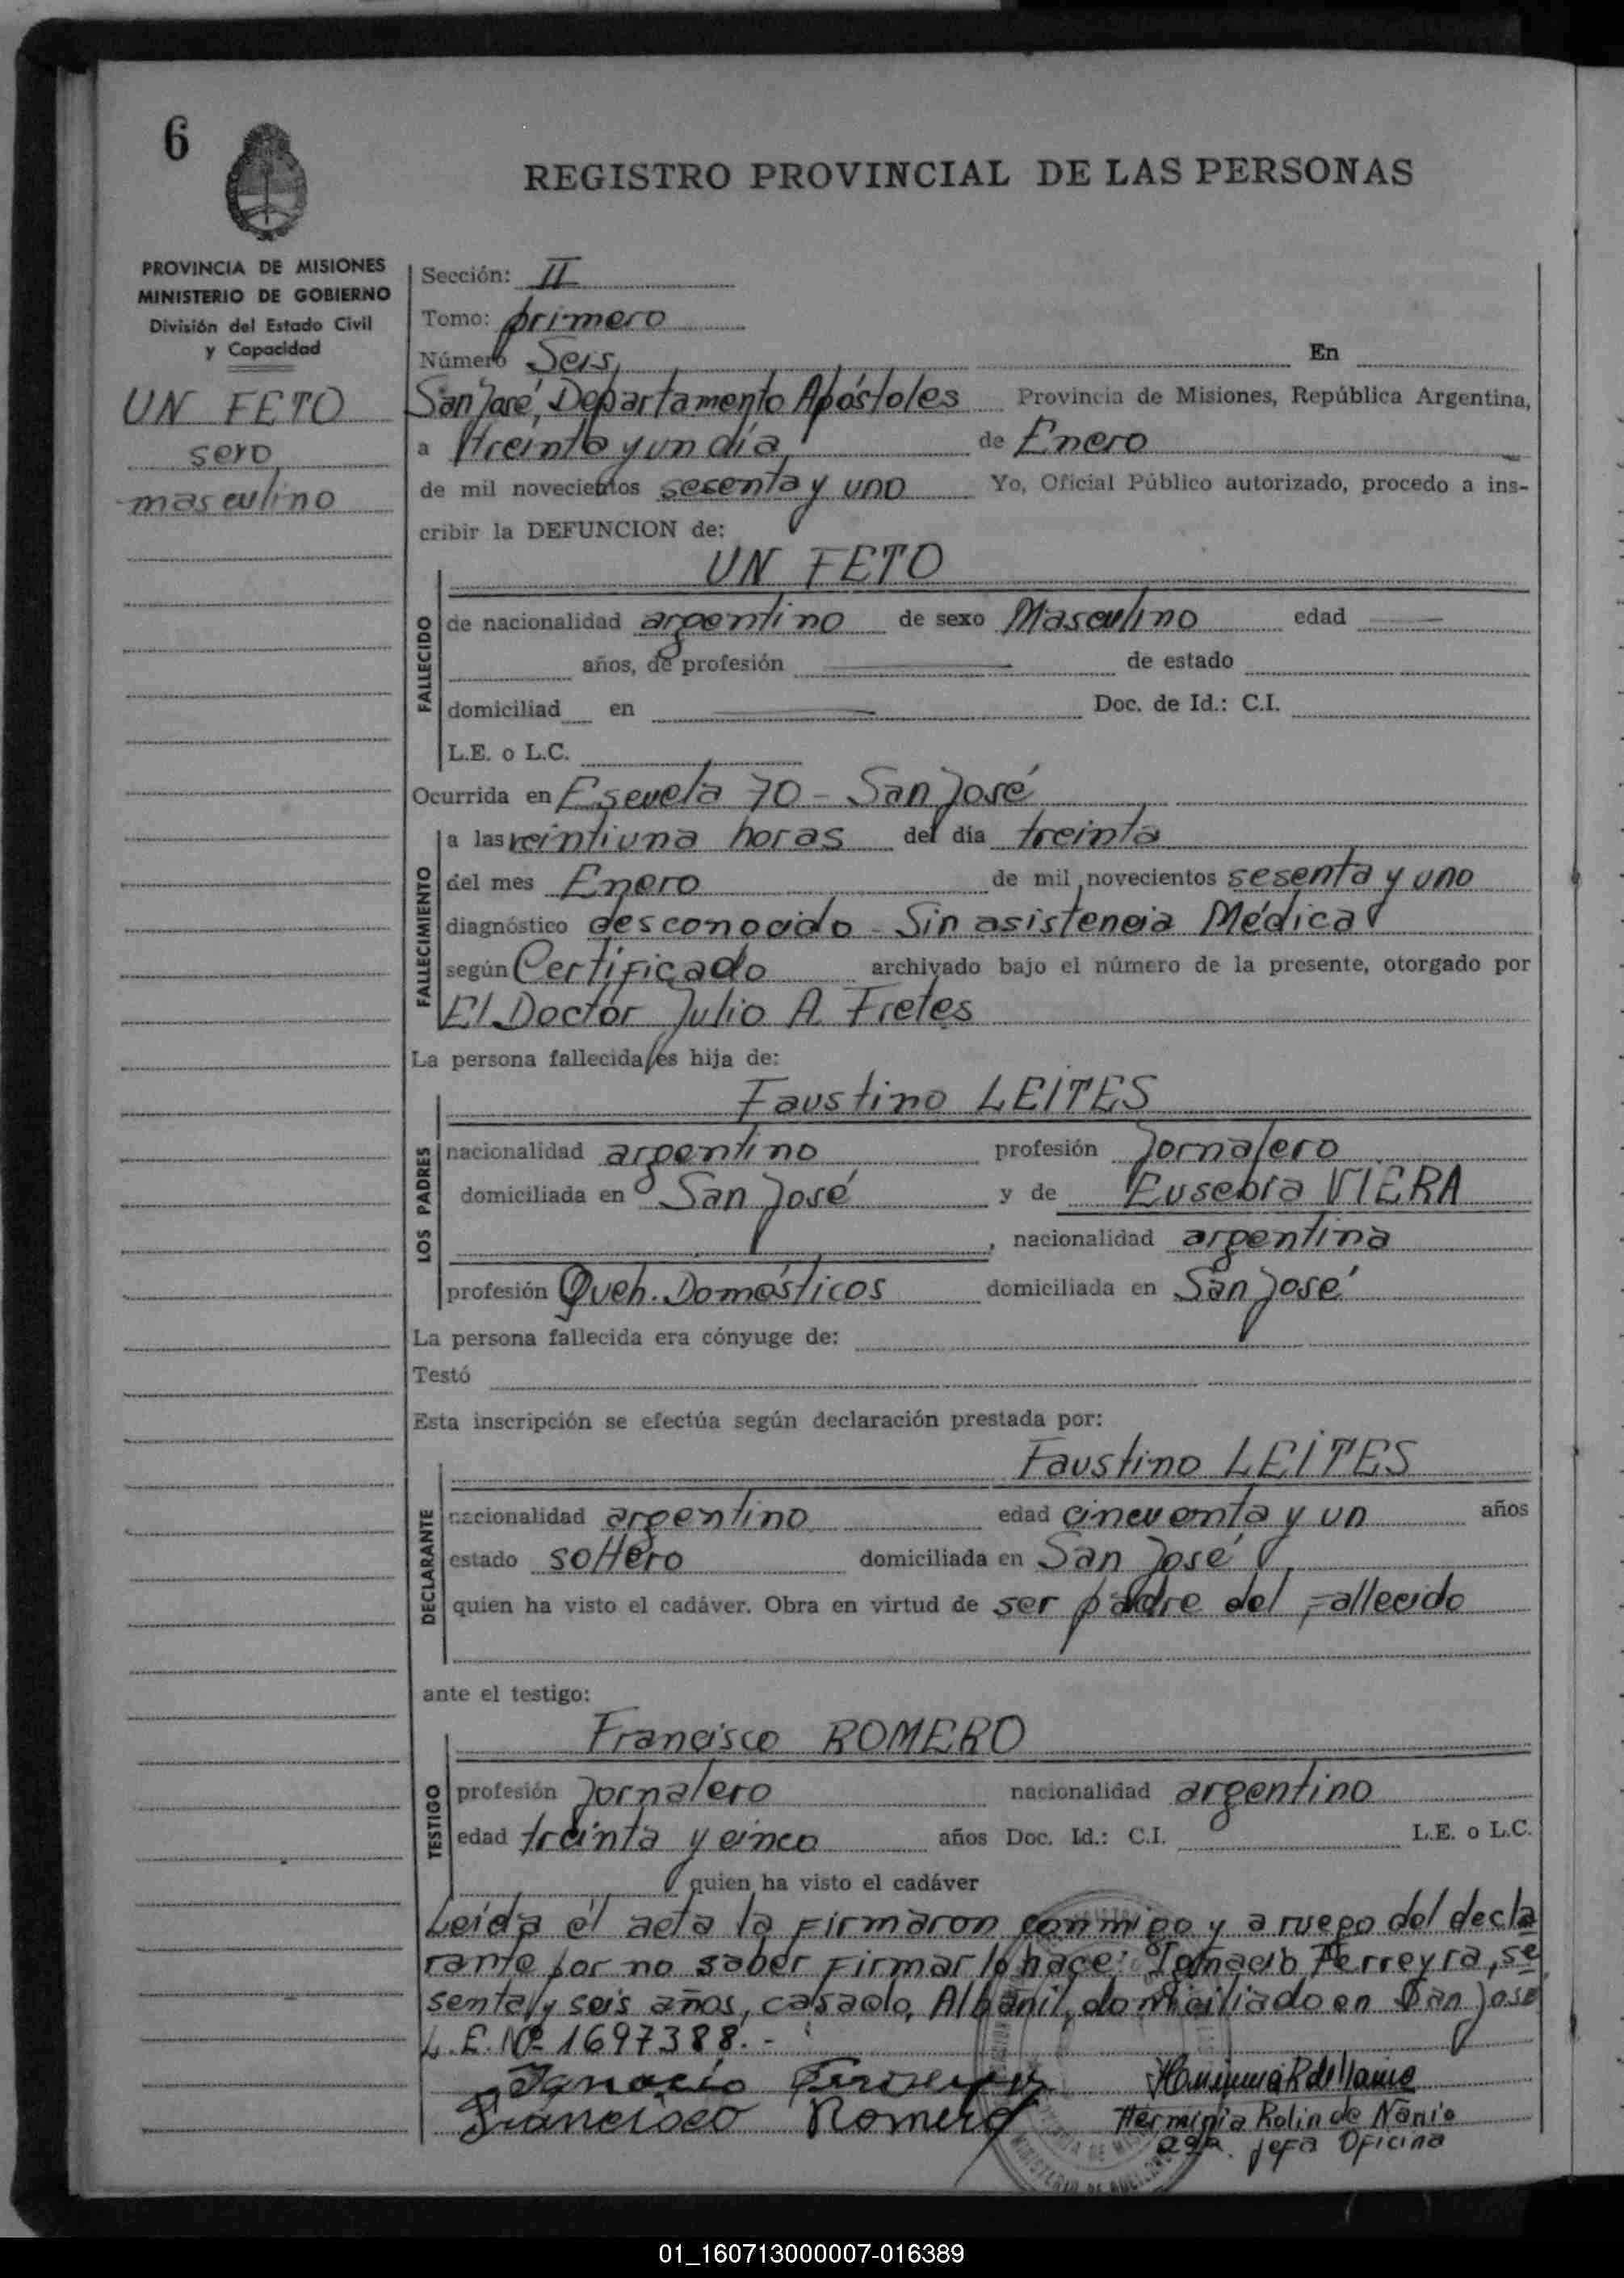 6
REGISTRO PROVINCIAL DE LAS PERSONAS
PROVINCIA DE MISIONES
MINISTERIO DE GOBIERNO
División del Estado Civil
y Capacidad
UN FETO
sexo
masculino
Sección: II
Tomo: primero
Número Seis, En
San José, Departamento Apóstoles Provincia de Misiones, República Argentina,
a treinta y un día de Enero
de mil novecientos sesenta y uno Yo, Oficial Público autorizado, procedo a ins-
cribir la DEFUNCION de:
UN FETO
FALLECIDO
de nacionalidad argentino de sexo Masculino edad
años, de profesión de estado
domiciliad en Doc. de Id.: C.I.
L.E. o L.C.
Ocurrida en Escuela 70 - San José
FALLECIMIENTO
a las veintiuna horas del día treinta
del mes Enero de mil novecientos sesenta y uno
diagnóstico desconocido - Sin asistencia Médica
según Certificado archivado bajo el número de la presente, otorgado por
El Doctor Julio A. Fretes
La persona fallecida es hija de:
LOS PADRES
Faustino LEITES
nacionalidad argentino profesión Jornalero
domiciliada en San José y de Eusebia VIERA
, nacionalidad argentina
profesión Queh. Domésticos domiciliada en San José
La persona fallecida era cónyuge de:
Testó
Esta inscripción se efectúa según declaración prestada por:
DECLARANTE
Faustino LEITES
nacionalidad argentino edad cincuenta y un años
estado soltero domiciliada en San José
quien ha visto el cadáver. Obra en virtud de ser padre del fallecido
ante el testigo:
TESTIGO
Francisco ROMERO
profesión Jornalero nacionalidad argentino
edad treinta y cinco años Doc. Id.: C.I. L.E. o L.C.
quien ha visto el cadáver
Leída el acta la firmaron conmigo y a ruego del decla
rante por no saber firmar lo hace: Ignacio Ferreyra, se
senta y seis años, casado, Albanil, domiciliado en San José
L.E. Nº 1697388.-
Ignacio Ferreyra
Francisco Romero
Herminia R de Nanio
Herminia Rolin de Nanio
Jefa Oficina
01_160713000007-016389